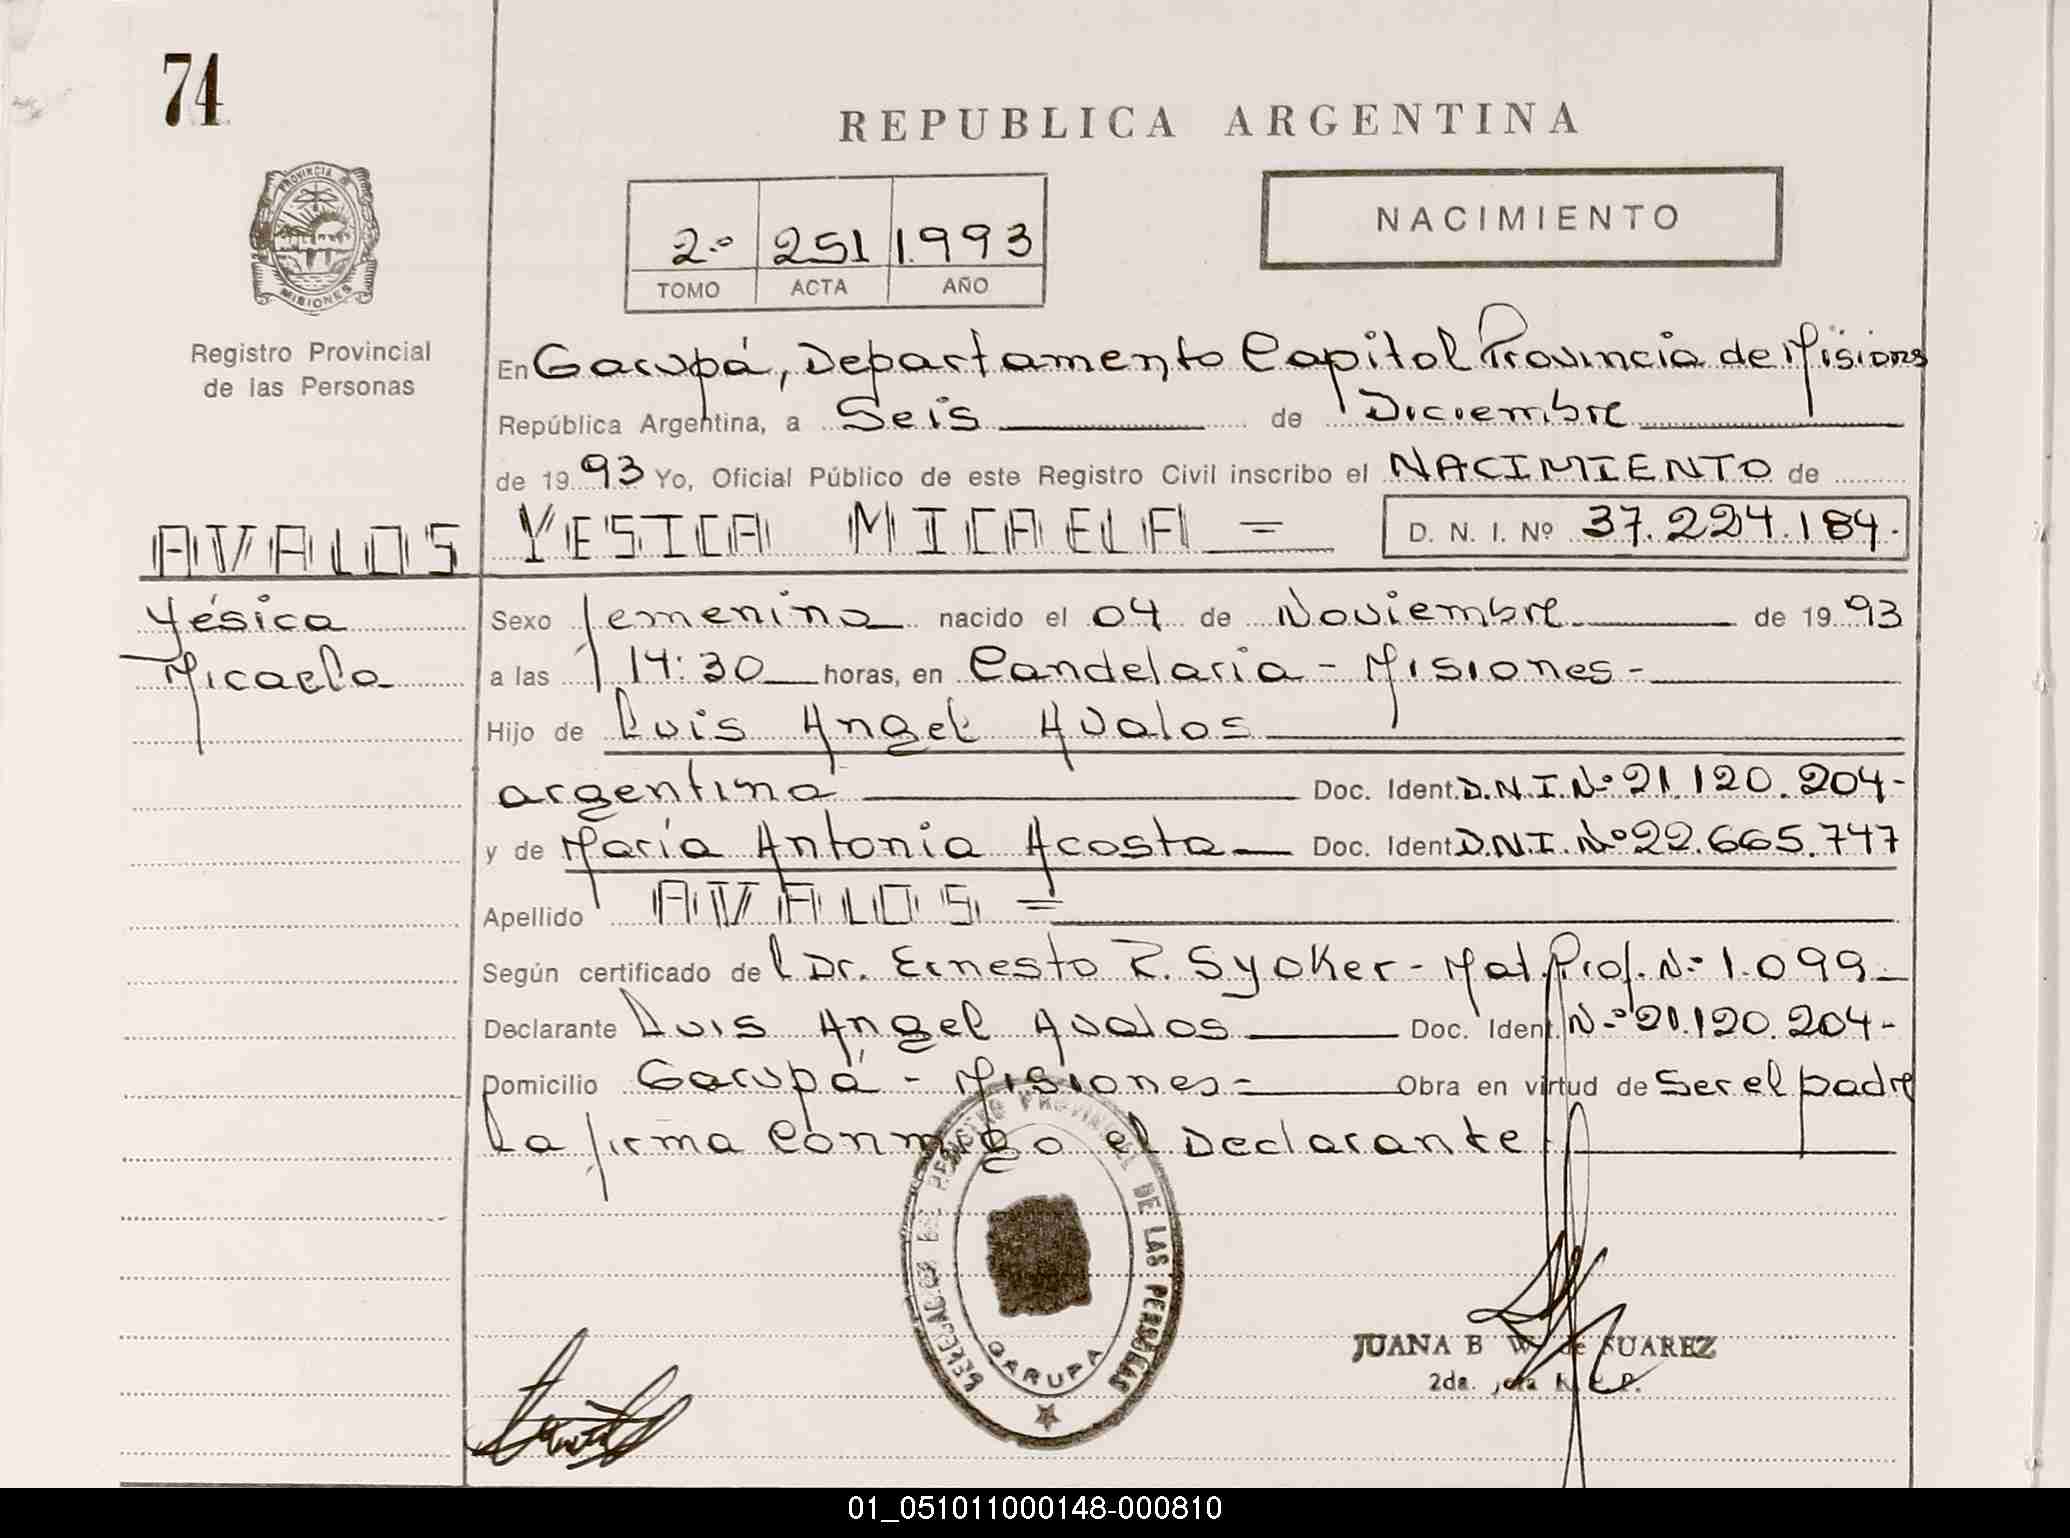 74
REPUBLICA ARGENTINA
PROVINCIA DE MISIONES
2.º 251 1.993
TOMO ACTA AÑO
NACIMIENTO
Registro Provincial
de las Personas
En Garupá, Departamento Capital Provincia de Misiones
República Argentina, a Seis de Diciembre
de 19 93 Yo, Oficial Público de este Registro Civil inscribo el NACIMIENTO de
AVALOS YESICA MICAELA = D. N. I. Nº 37.224.184.
Yésica
Micaela
Sexo femenino nacido el 04 de Noviembre de 19 93
a las 14:30 horas, en Candelaria - Misiones -
Hijo de Luis Angel Avalos
argentina Doc. Ident. D.N.I. Nº 21.120.204-
y de María Antonia Acosta Doc. Ident D.N.I. Nº 22.665.747
Apellido AVALOS =
Según certificado de l Dr. Ernesto R. Syoker - Mat. Prof. Nº 1.099
Declarante Luis Angel Avalos Doc. Ident. Nº 21.120.204-
Domicilio Garupá - Misiones = Obra en virtud de Ser el padre
la firma Conmigo el Declarante
DELEGACION DEL REGISTRO PROVINCIAL DE LAS PERSONAS
GARUPA
JUANA B W. de SUAREZ
2da. Jefa R. P.
01_051011000148-000810